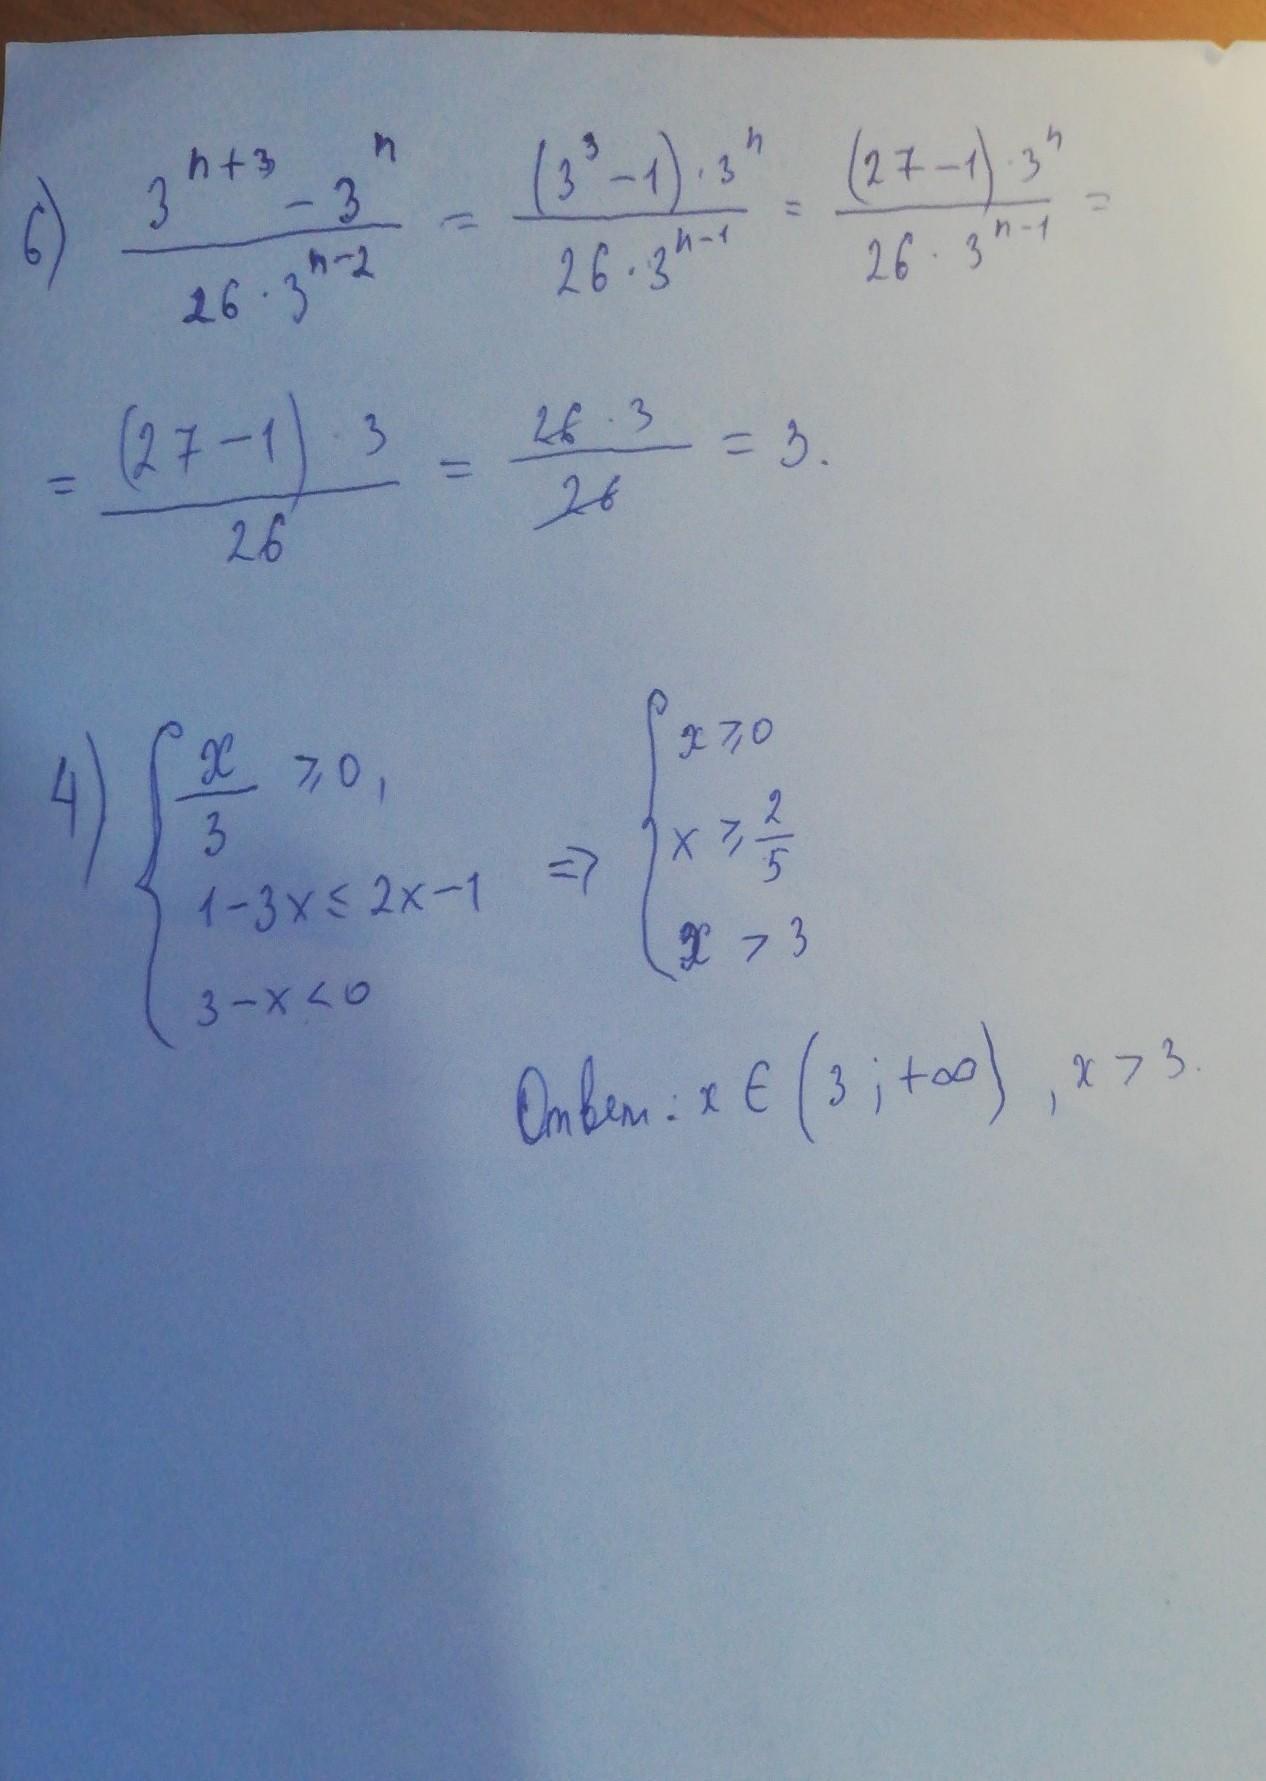 6) \frac{3^{n+3} - 3^n}{26 \cdot 3^{n-2}} = \frac{(3^3 - 1) \cdot 3^n}{26 \cdot 3^{n-1}} = \frac{(27 - 1) \cdot 3^n}{26 \cdot 3^{n-1}} =
= \frac{(27 - 1) \cdot 3}{26} = \frac{26 \cdot 3}{26} = 3.
4) \begin{cases} \frac{x}{3} ⩾ 0, \\ 1 - 3x ≤ 2x - 1 \\ 3 - x < 0 \end{cases} ⇒ \begin{cases} x ⩾ 0 \\ x ⩾ \frac{2}{5} \\ x > 3 \end{cases}
Ответ: x ∈ (3; +∞), x > 3.